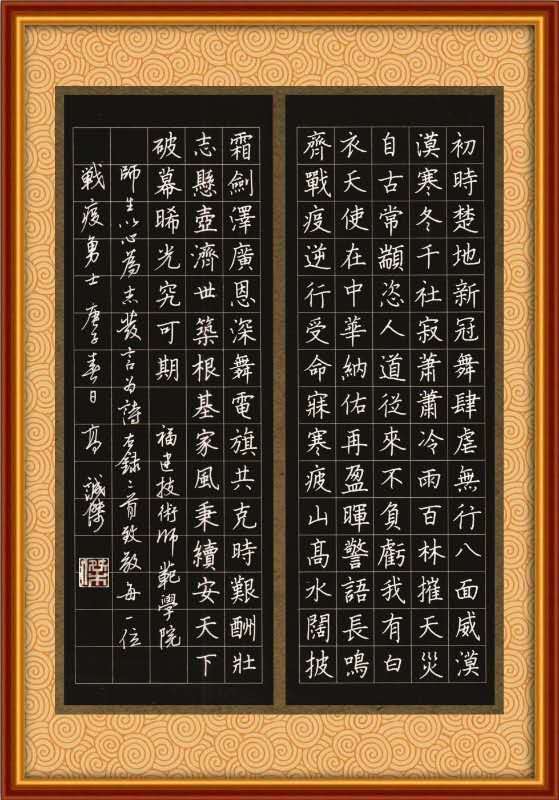 初時楚地新冠舞肆虐無行八面威漠
漠寒冬千社寂蕭蕭冷雨百林摧天災
自古常顓恣人道從來不負虧我有白
衣天使在中華納佑再盈暉警語長鳴
齊戰疫逆行受命寐寒疲山高水闊披
霜劍澤廣恩深舞電旗共克時艱酬壯
志懸壺濟世築根基家風秉續安天下
破幕晞光究可期 福建技術師範學院
師生以心為志發言為詩 右錄二首致敬每一位
戰疫勇士 庚子春日 高誠傑